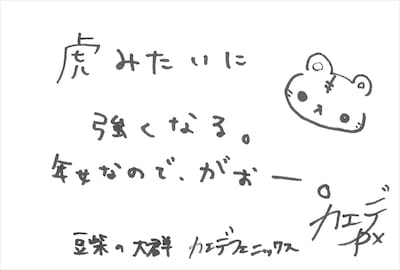 虎みたいに
強くなる。
年女なので、がおー。
カエデ
px
豆柴の大群 カエデフェニックス